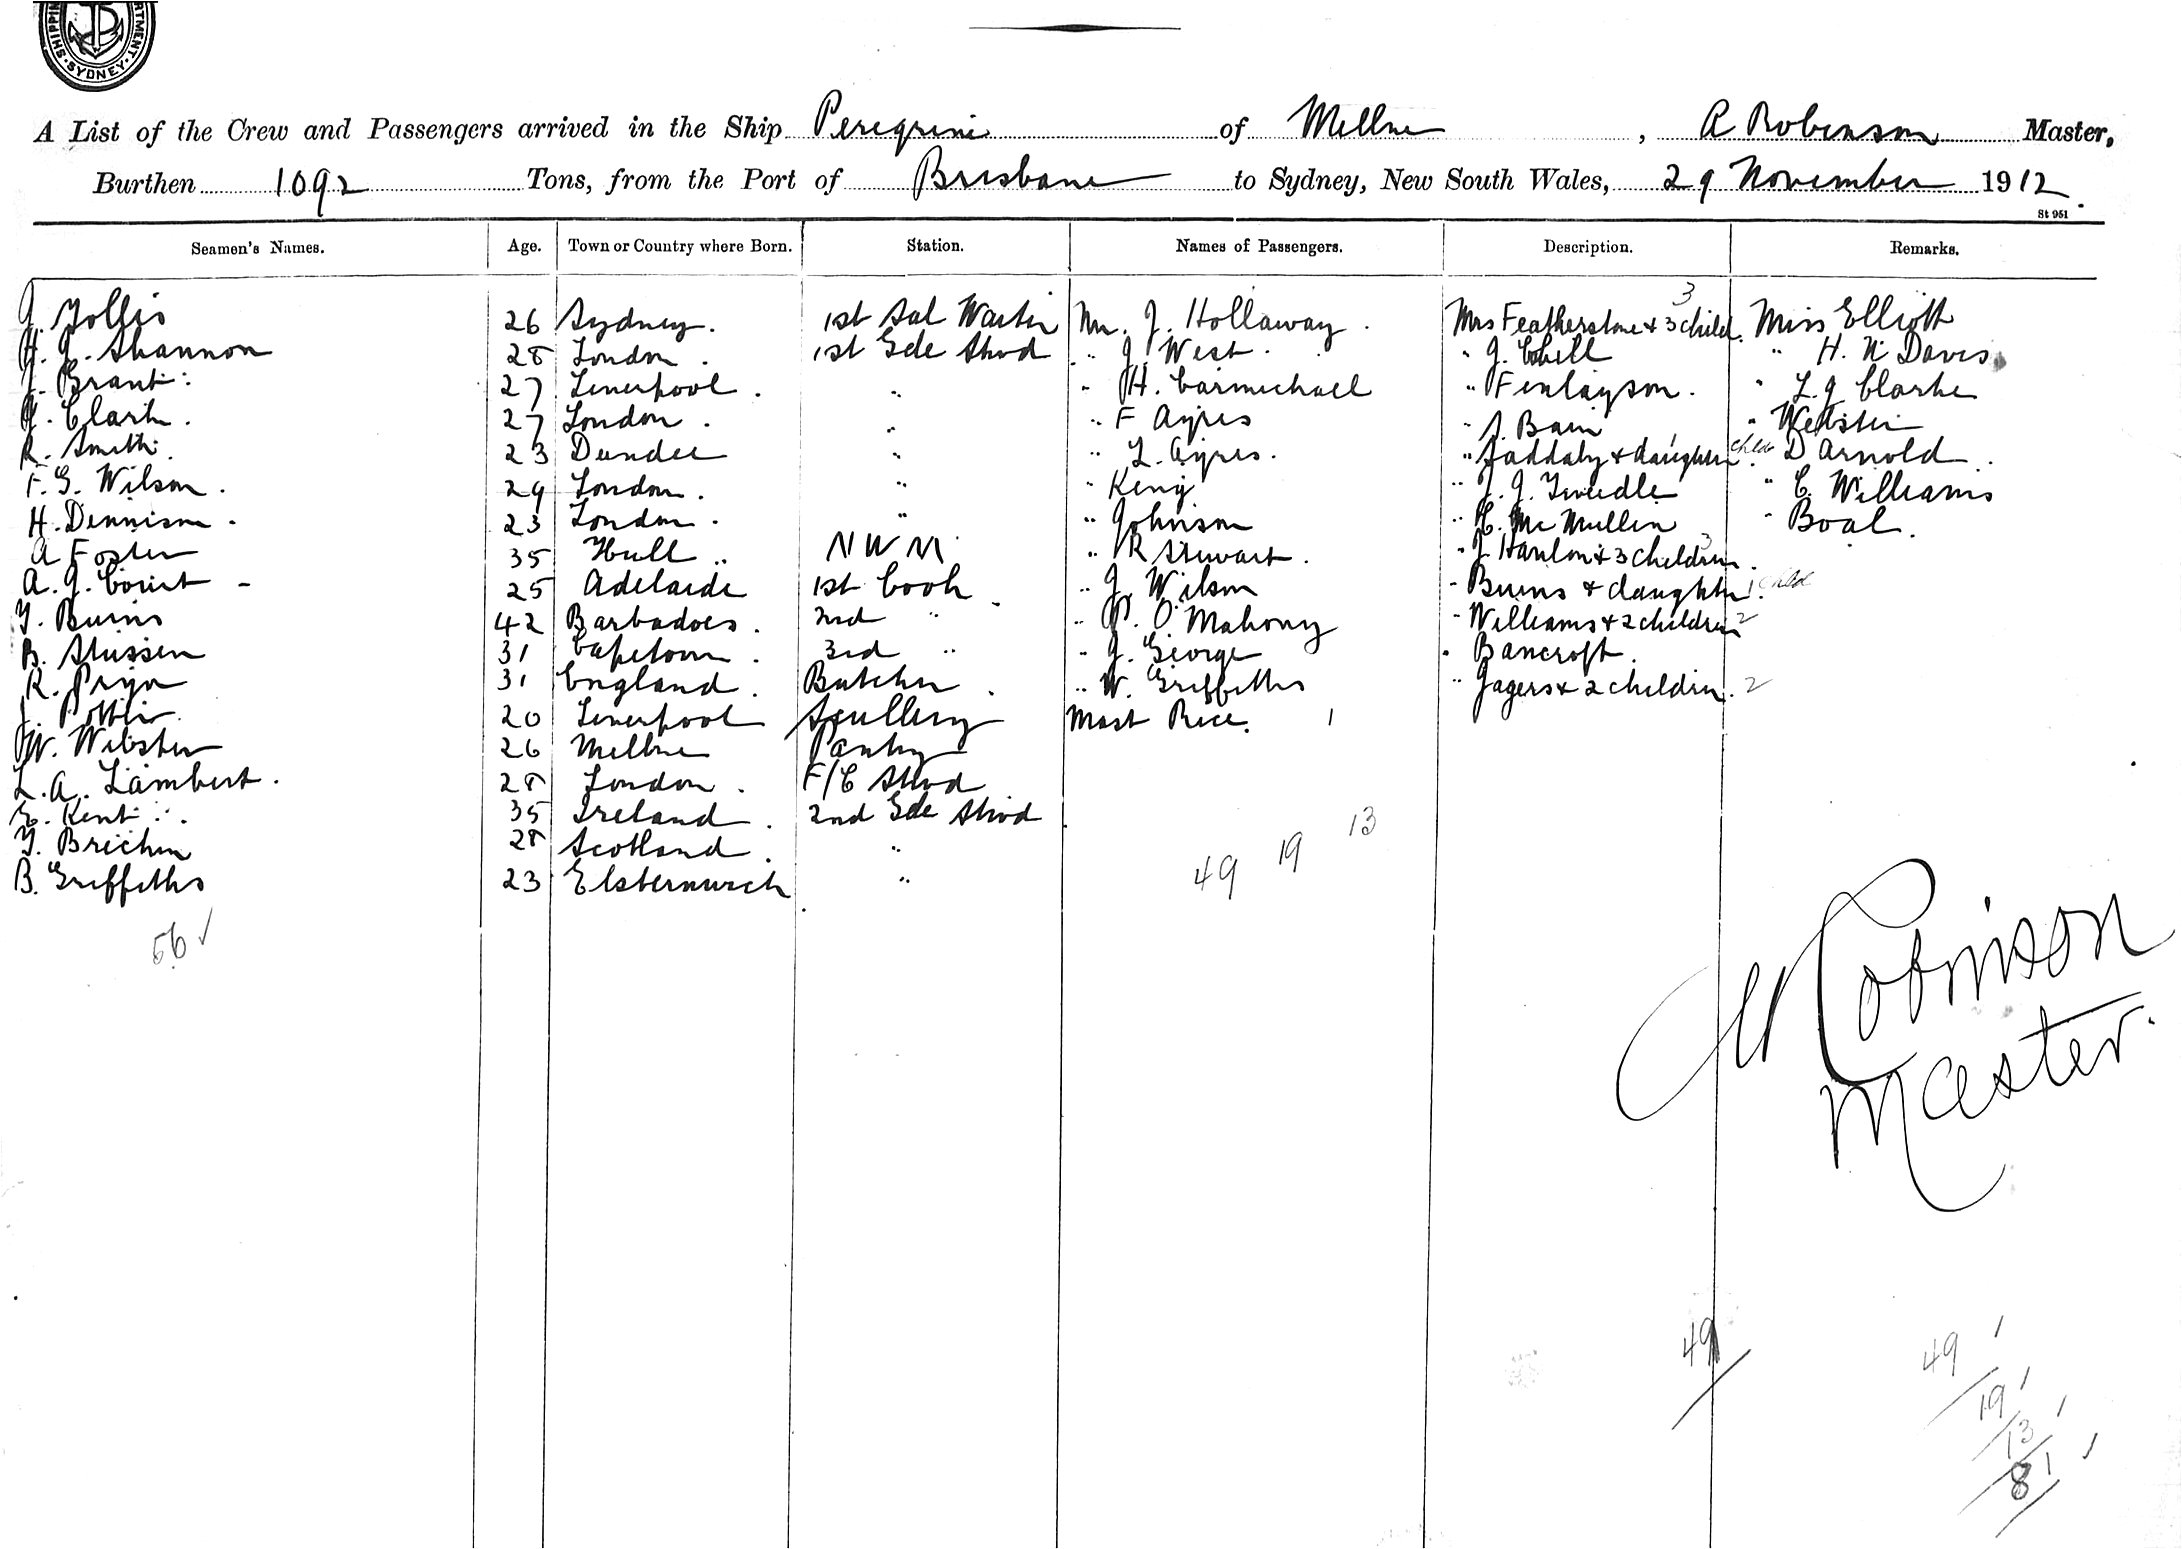 SHIPPING DEPARTMENT. SYDNEY.
A List of the Crew and Passengers arrived in the Ship Peregrine of Mellne, A Robinson Master,
Burthen 1092 Tons, from the Port of Brisbane to Sydney, New South Wales, 29 November 1912.
St 951
Seamen's Names. Age. Town or Country where Born. Station. Names of Passengers. Description. Remarks.
26 Sydney. 1st Sal Waiter Mr. J. Hollaway. Mrs Featherstone & 3 child. 3 Miss Elliott
Shannon 28 London. 1st Sde Stwd " J. West. " J. " H. N Davis
J. Grant. 27 Liverpool. " " H. Carmichael " Finlayson. " L. J Clarke
Clark. 27 London. " " F Ayres " Bain " Webster
R. Smith. 23 Dundee " " L. Ayres. " & daughter child " D Arnold
F. G. Wilson. 29 London. " " King " J. J. Tweedle " C. Williams
H. Dennison. 23 London. " " Johnson " McMullin " Boal.
A Foster 35 Hull " " R Stewart. " J Hanlon & 3 children 3
A. J. Court 25 Adelaide 1st Cook " J. Wilson " Burns & daughter 1 child
T. Burns 42 Barbadoes. 2nd " " P. O'Mahony " Williams & 2 children 2
B. Stussen 31 Capetown. 3rd " " J. George " Bancroft.
R. Pryor 31 England. Butcher " W. Griffiths " Jagers & 2 children. 2
J. 20 Liverpool Scullery Mast Rice. 1
W. Webster 26 Mellne Pantry
L. A. Lambert. 28 London. F/C Stwd
Kent 35 Ireland. 2nd Sde Stwd
28 Scotland. "
B. Griffiths 23 Elsternwick "
49 19 13
56 ✓
A Robinson
Master.
49
49
19
13
81